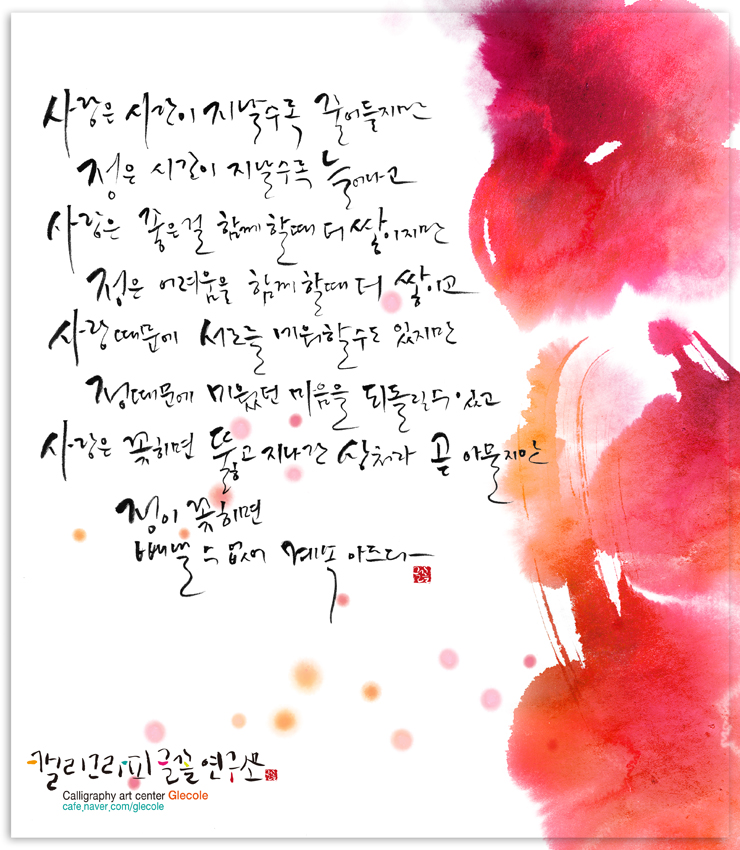 사랑은 시간이 지날수록 줄어들지만
정은 시간이 지날수록 늘어나고
사랑은 좋은걸 함께 할때 더 쌓이지만
정은 어려움을 함께 할때 더 쌓이고
사랑때문에 서로를 미워할수도 있지만
정때문에 미웠던 마음을 되돌릴수 있고
사랑은 꽂히면 뚫고 지나간 상처라 곧 아물지만
정이 꽂히면
빼낼 수 없어 계속 아프다
캘리그라피 글꼴 연구소
Calligraphy art center Glecole
cafe.naver.com/glecole